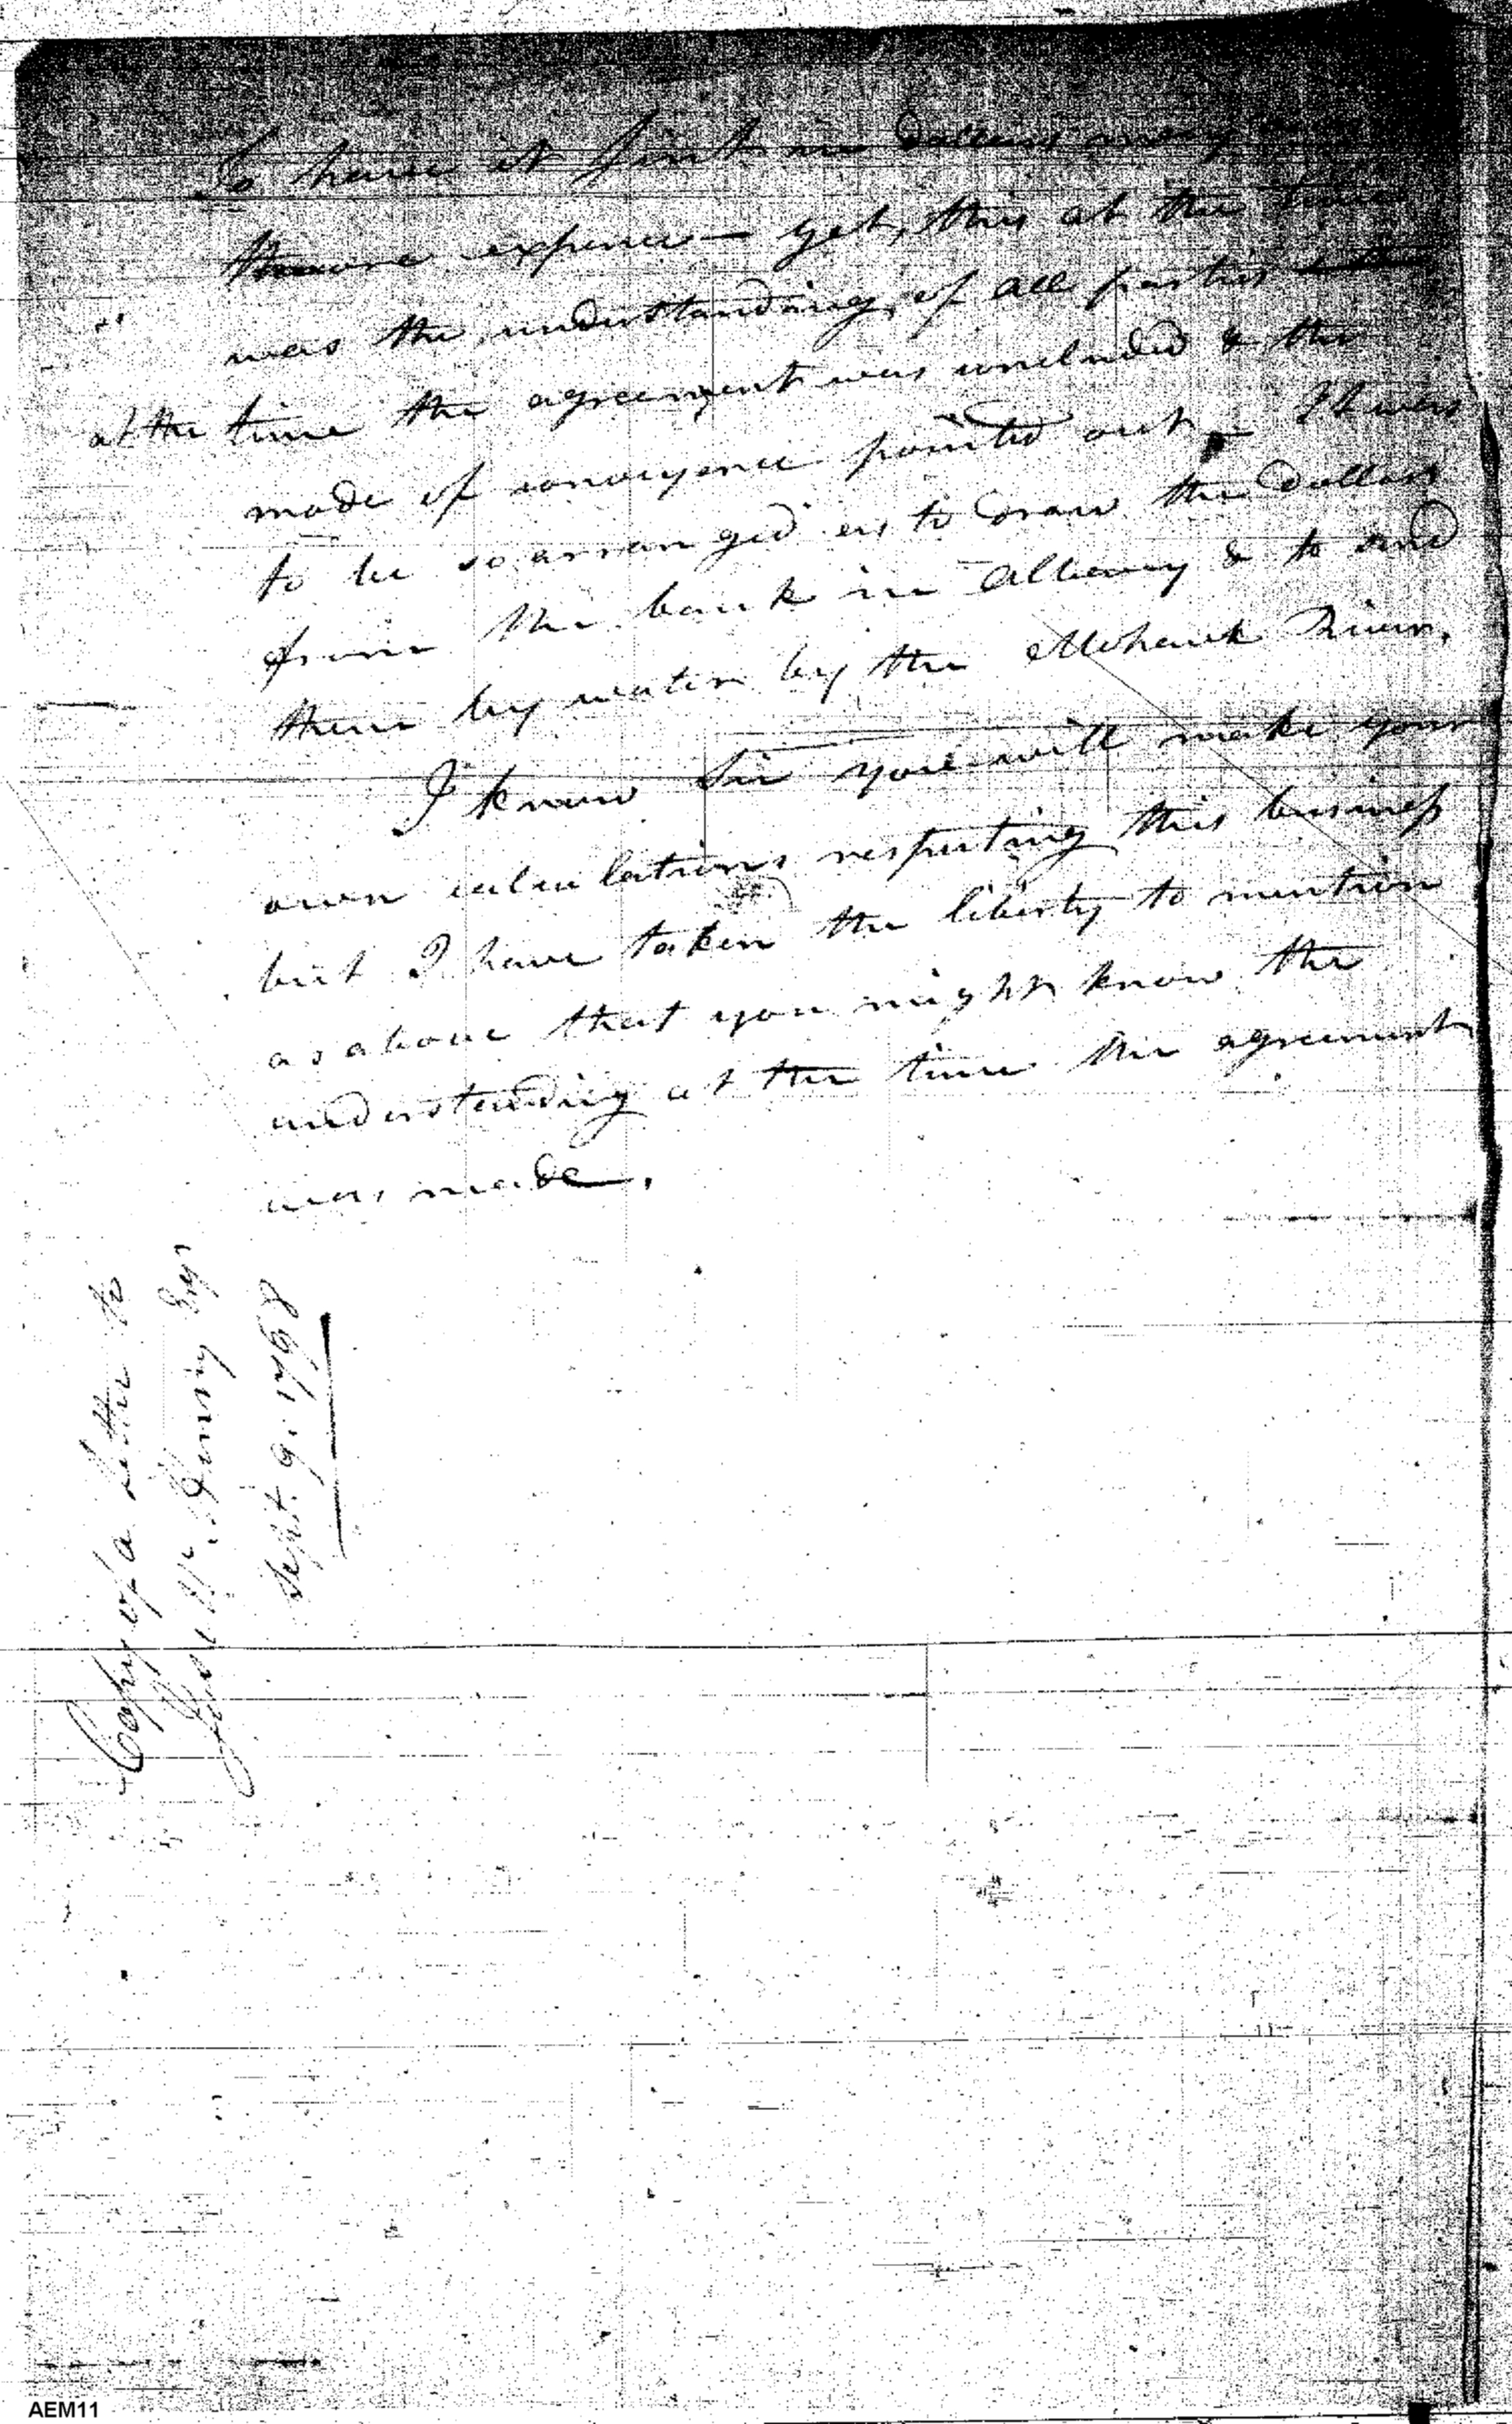 To have it sent in dollars may
more expence — yet, this at the time
was the understanding, of all parties
at the time the agreement was concluded & the
mode of conveyence pointed out — It was
to be so arranged as to draw the dollars
from the bank in Albany & to send
them by water by the Mohawk River.
I know Sir you will make your
own calculations respecting this business
but I have taken the liberty to mention
as above that you might know the
understanding at the time the agreement
was made.
Copy of a letter to
Esqr
Sept. 9. 1798
AEM11